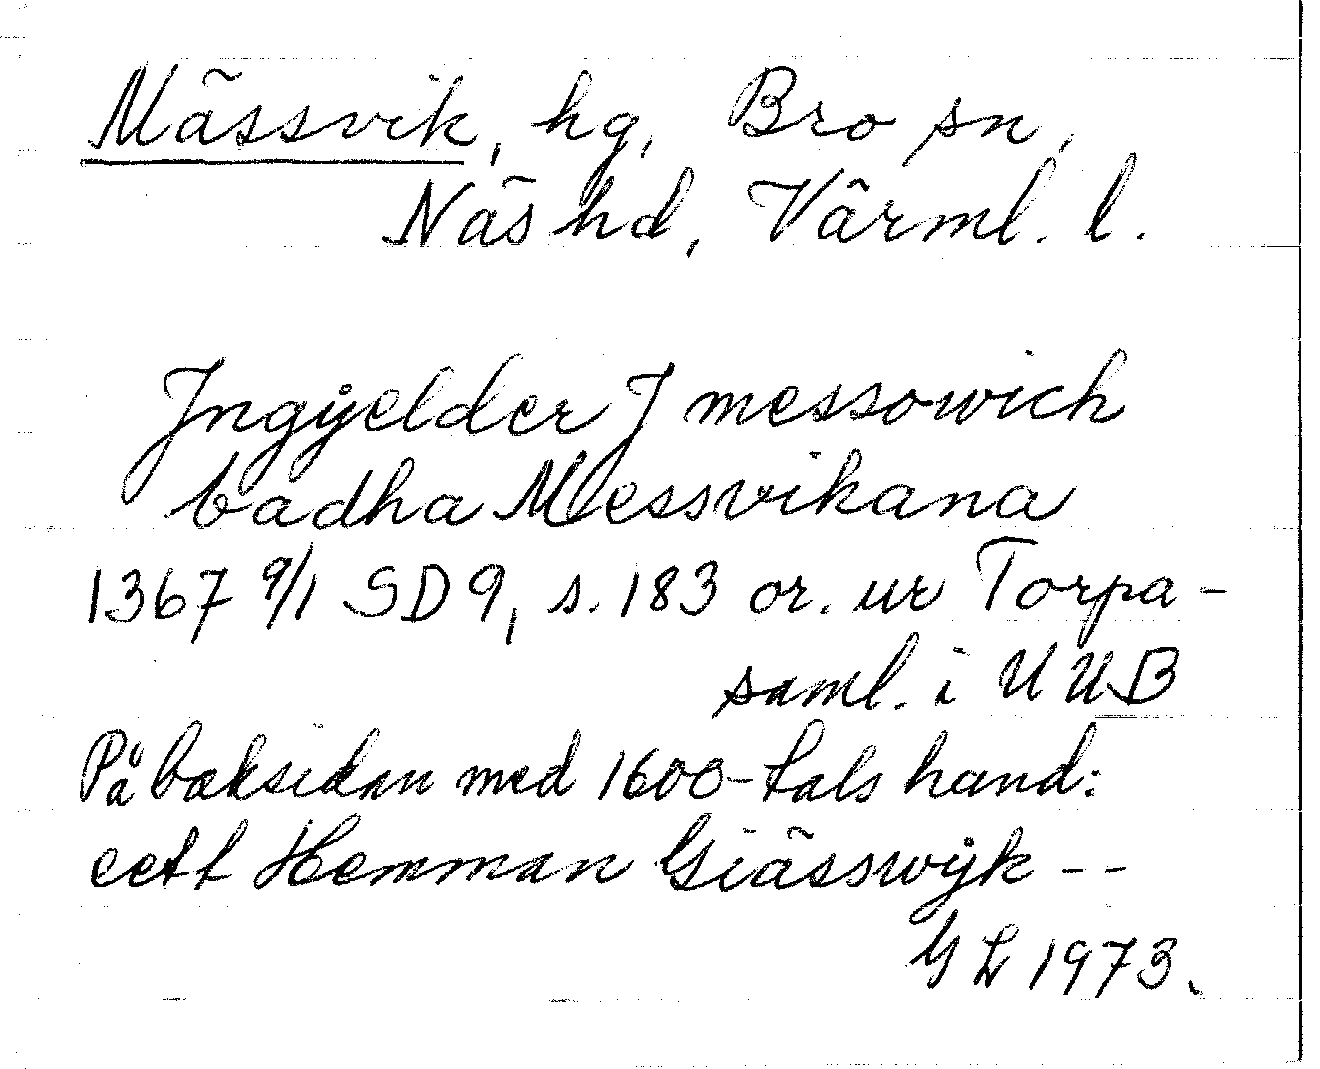 Mässvik, hg, Bro sn,
Näs hd, Värml. l.
Jngÿelder J messowich
badha Messvikana
1367 9/1 SD 9, s. 183 or. ur Torpa-
saml. i UUB
På baksidan med 1600-tals hand:
eett Hemman Giässwÿk --
GL 1973.